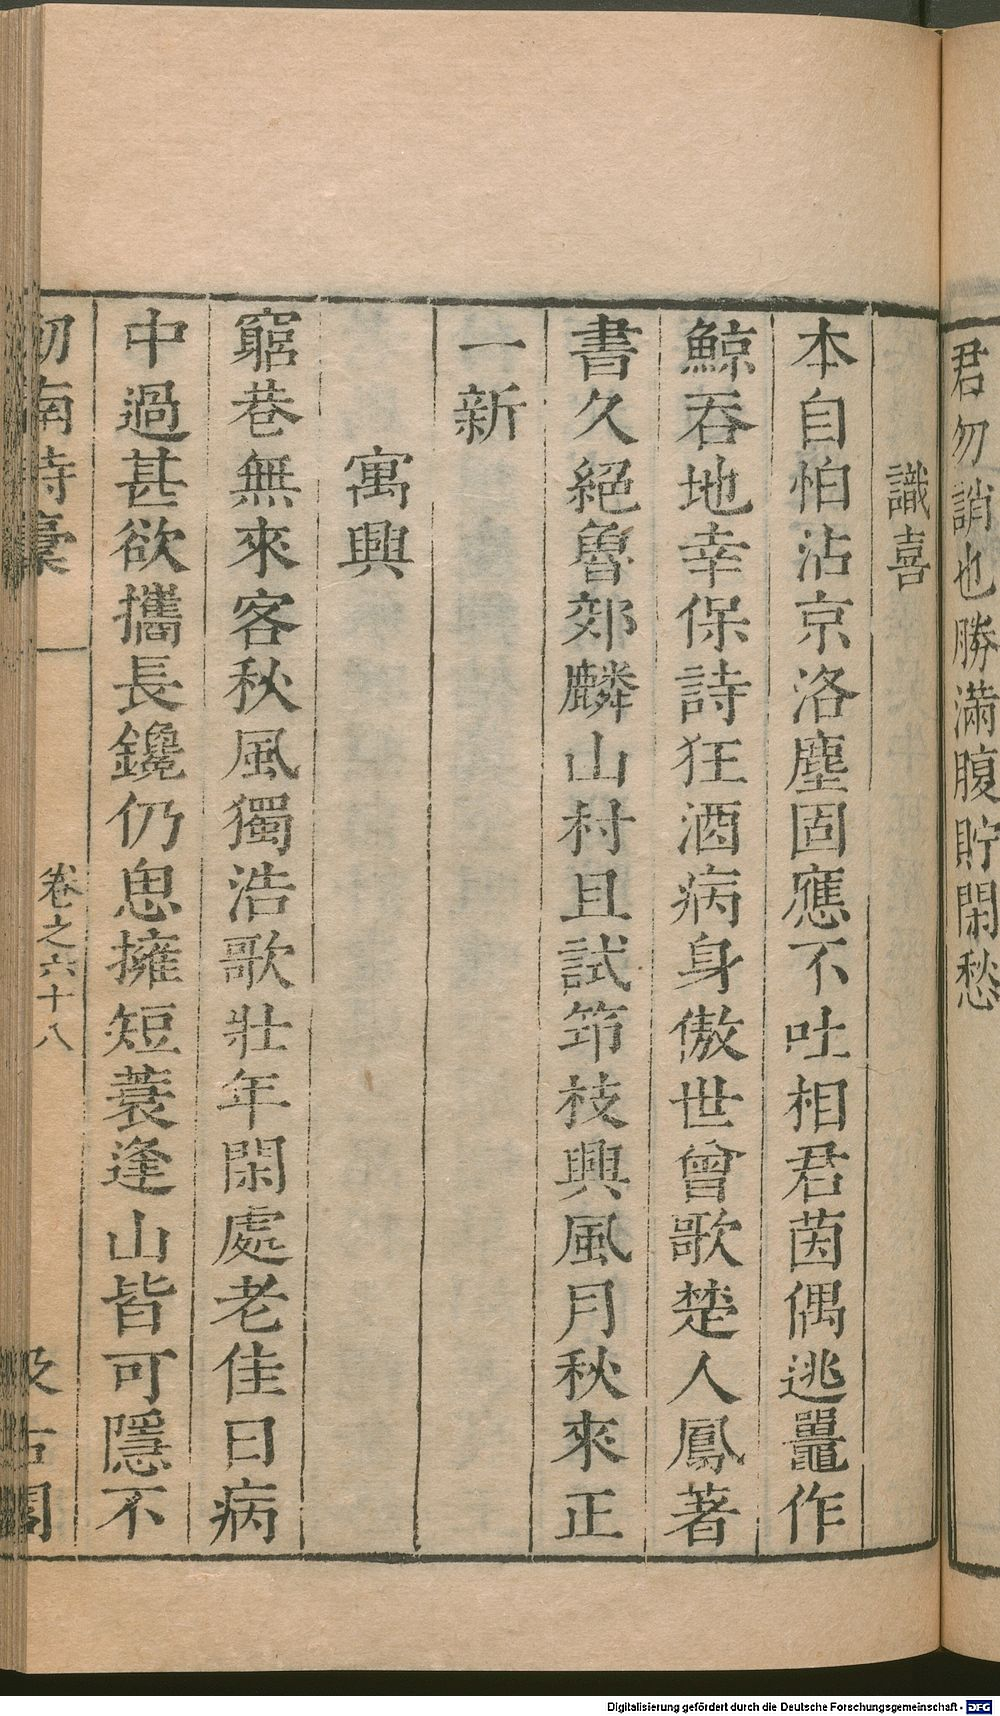 君勿誚也勝滿腹貯閑愁
識喜
本自怕沾京洛塵固應不吐相君茵偶逃鼉作
鯨吞地幸保詩狂酒病身傲世曾歌楚人鳳著
書久絕魯郊麟山村且試笻枝興風月秋來正
一新
寓興
窮巷無來客秋風獨浩歌壯年閑處老佳日病
中過甚欲攜長鑱仍思擁短蓑逢山皆可隱不
劒南詩稾
卷之六十八
汲古閣
Digitalisierung gefördert durch die Deutsche Forschungsgemeinschaft - DFG